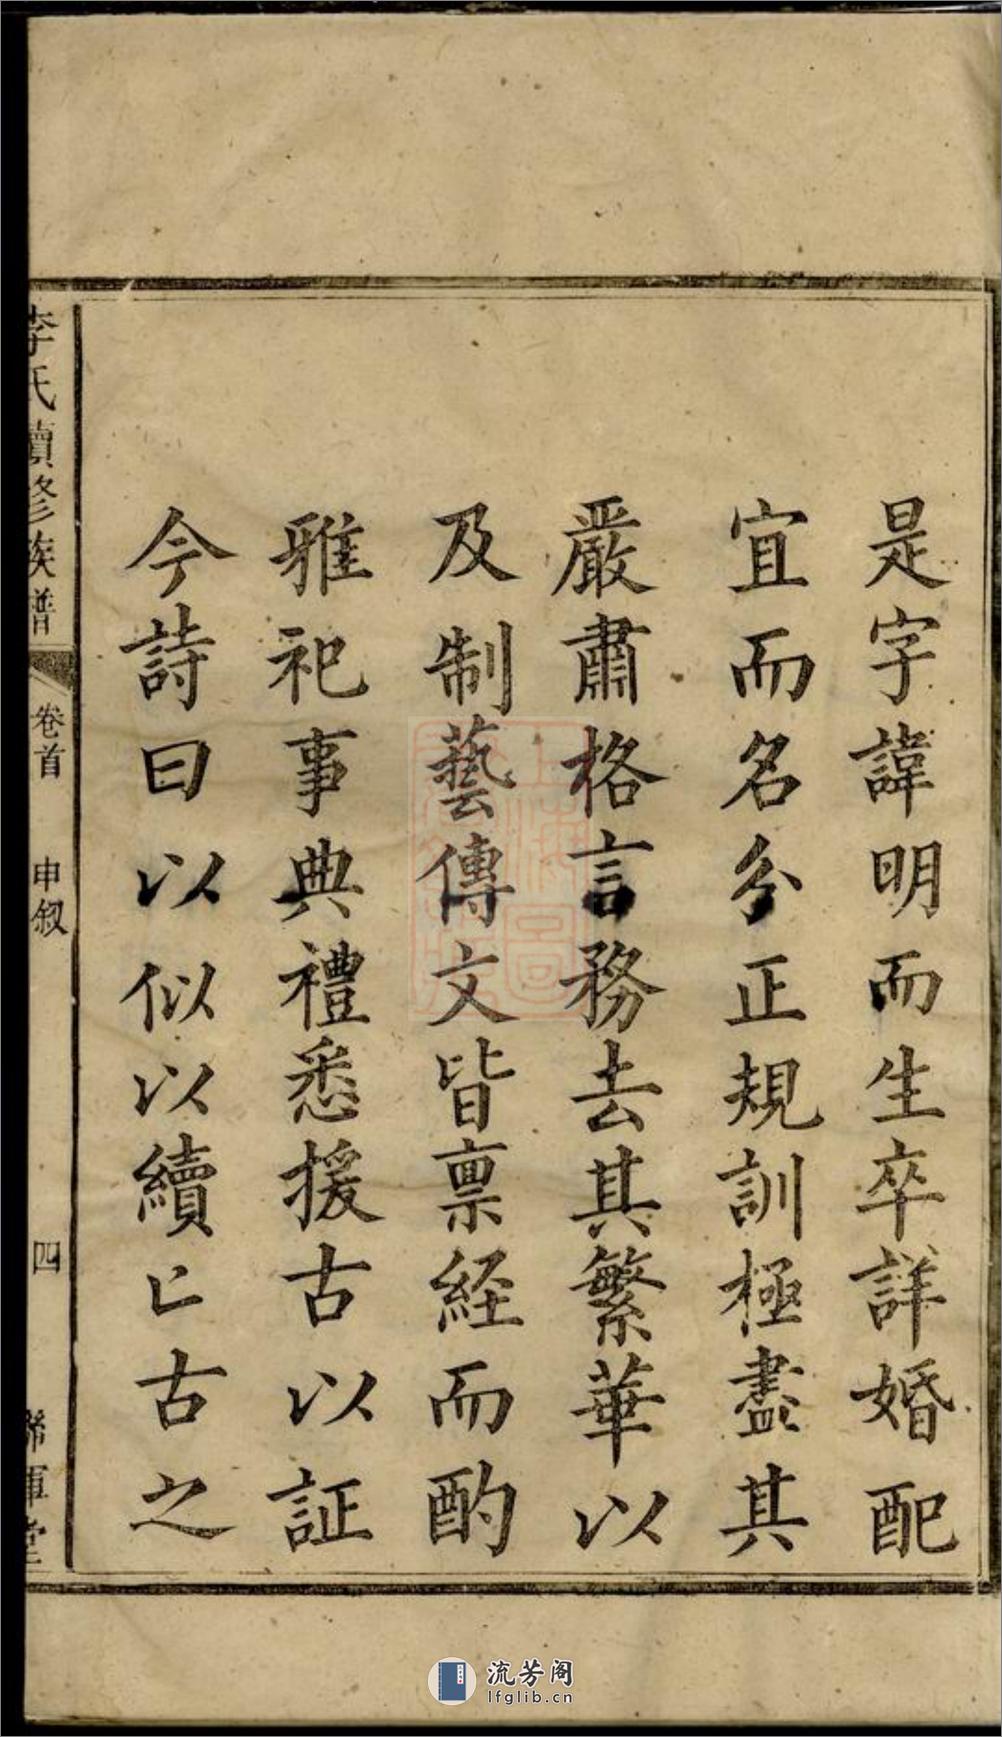 是字諱明而生卒詳婚配
宜而名分正規訓極盡其
嚴肅格言務去其繁華以
及制藝傳文皆禀経而酌
雅祀事典禮悉援古以証
今詩曰以似以續㠯古之
李氏續修族譜
卷首
申叙
四
堂
流芳阁
lfglib.cn